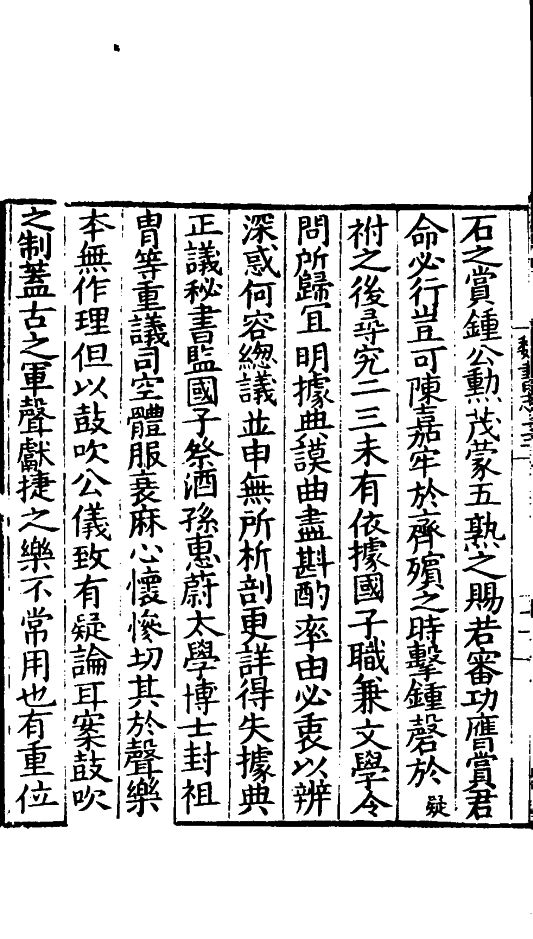 石之賞鍾公勲茂蒙五熟之賜若審功膺賞君
命必行豈可陳嘉牢於齊殯之時擊鍾磬於疑
祔之後尋究二三未有依據國子職兼文學令
問所歸冝明據典謨曲盡斟酌率由必衷以辨
深惑何容緫議並申無所析剖更詳得失據典
正議秘書監國子祭酒孫惠蔚太學博士封祖
冑等重議司空體服衰麻心懷慘切其於聲樂
本無作理但以鼓吹公儀致有疑論耳案鼓吹
之制蓋古之軍聲獻捷之樂不常用也有重位